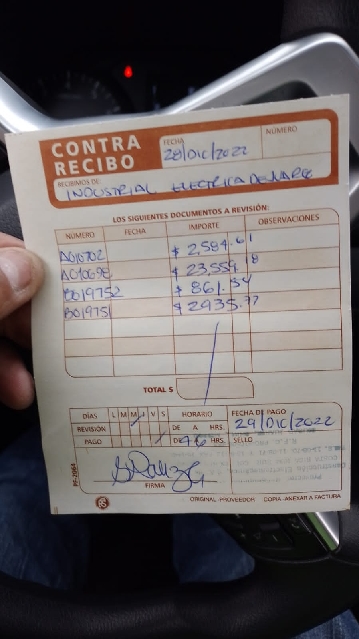 CONTRA RECIBO
FECHA
28/DIC/2022
NÚMERO
RECIBIMOS DE:
INDUSTRIAL ELECTRICA DE
LOS SIGUIENTES DOCUMENTOS A REVISIÓN:
NÚMERO FECHA IMPORTE OBSERVACIONES
A010702 $ 2,584.61
A010698 $ 23,559.18
B019752 $ 861.54
B01975 $ 2935.77
TOTAL $
DÍAS L M M J V S HORARIO FECHA DE PAGO
REVISIÓN DE A HRS. 29/DIC/2022
PAGO DE 4 6 HRS. SELLO
FIRMA
ORIGINAL-PROVEEDOR COPIA-ANEXAR A FACTURA